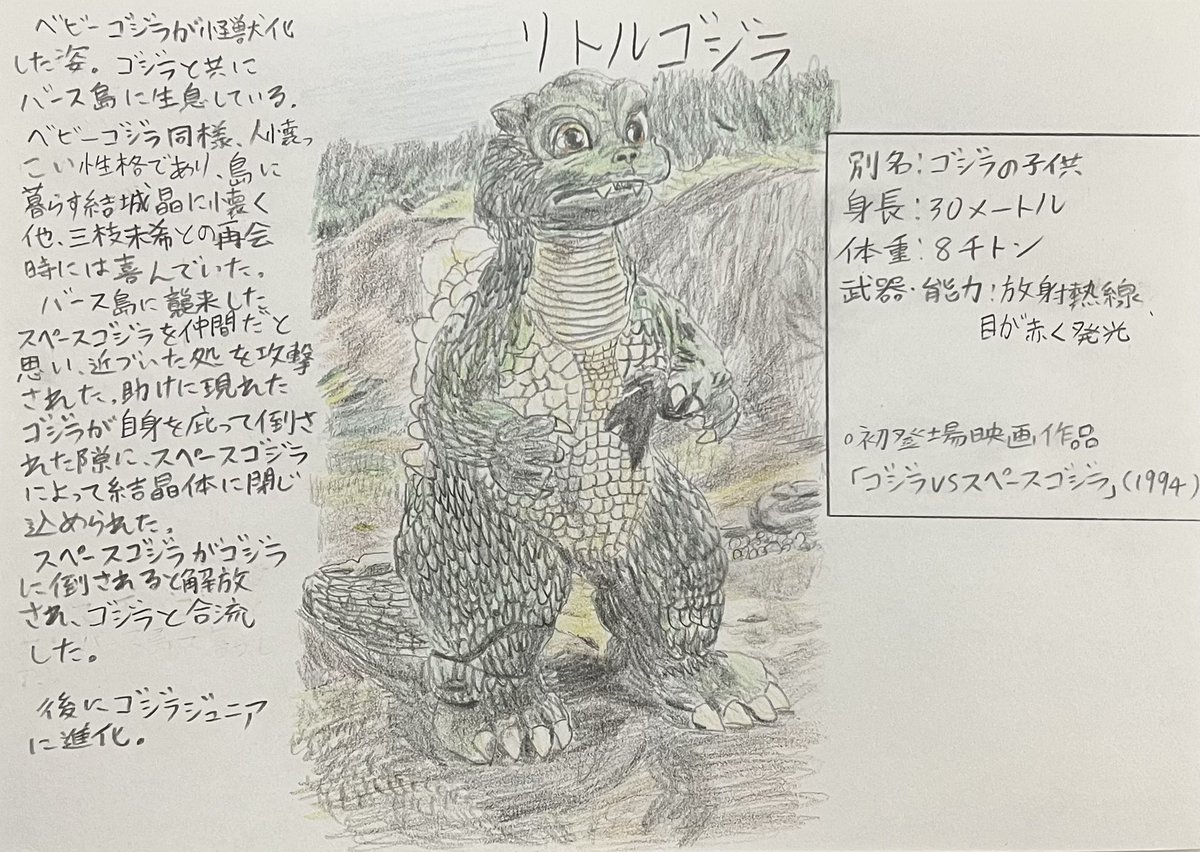 リトルゴジラ
ベビーゴジラが怪獣化
した姿。ゴジラと共に
バース島に生息している。
ベビーゴジラ同様、人懐っ
こい性格であり、島に
暮らす結城晶に懐く
他、三枝未希との再会
時には喜んでいた。
バース島に襲来した
スペースゴジラを仲間だと
思い、近づいた処を攻撃
された。助けに現れた
ゴジラが自身を庇って倒さ
れた隙に、スペースゴジラ
によって結晶体に閉じ
込められた。
スペースゴジラがゴジラ
に倒されると解放
され、ゴジラと合流
した。
後にゴジラジュニア
に進化。
別名:ゴジラの子供
身長:30メートル
体重:8千トン
武器・能力:放射熱線、
目が赤く発光
○初登場映画作品
「ゴジラVSスペースゴジラ」(1994)